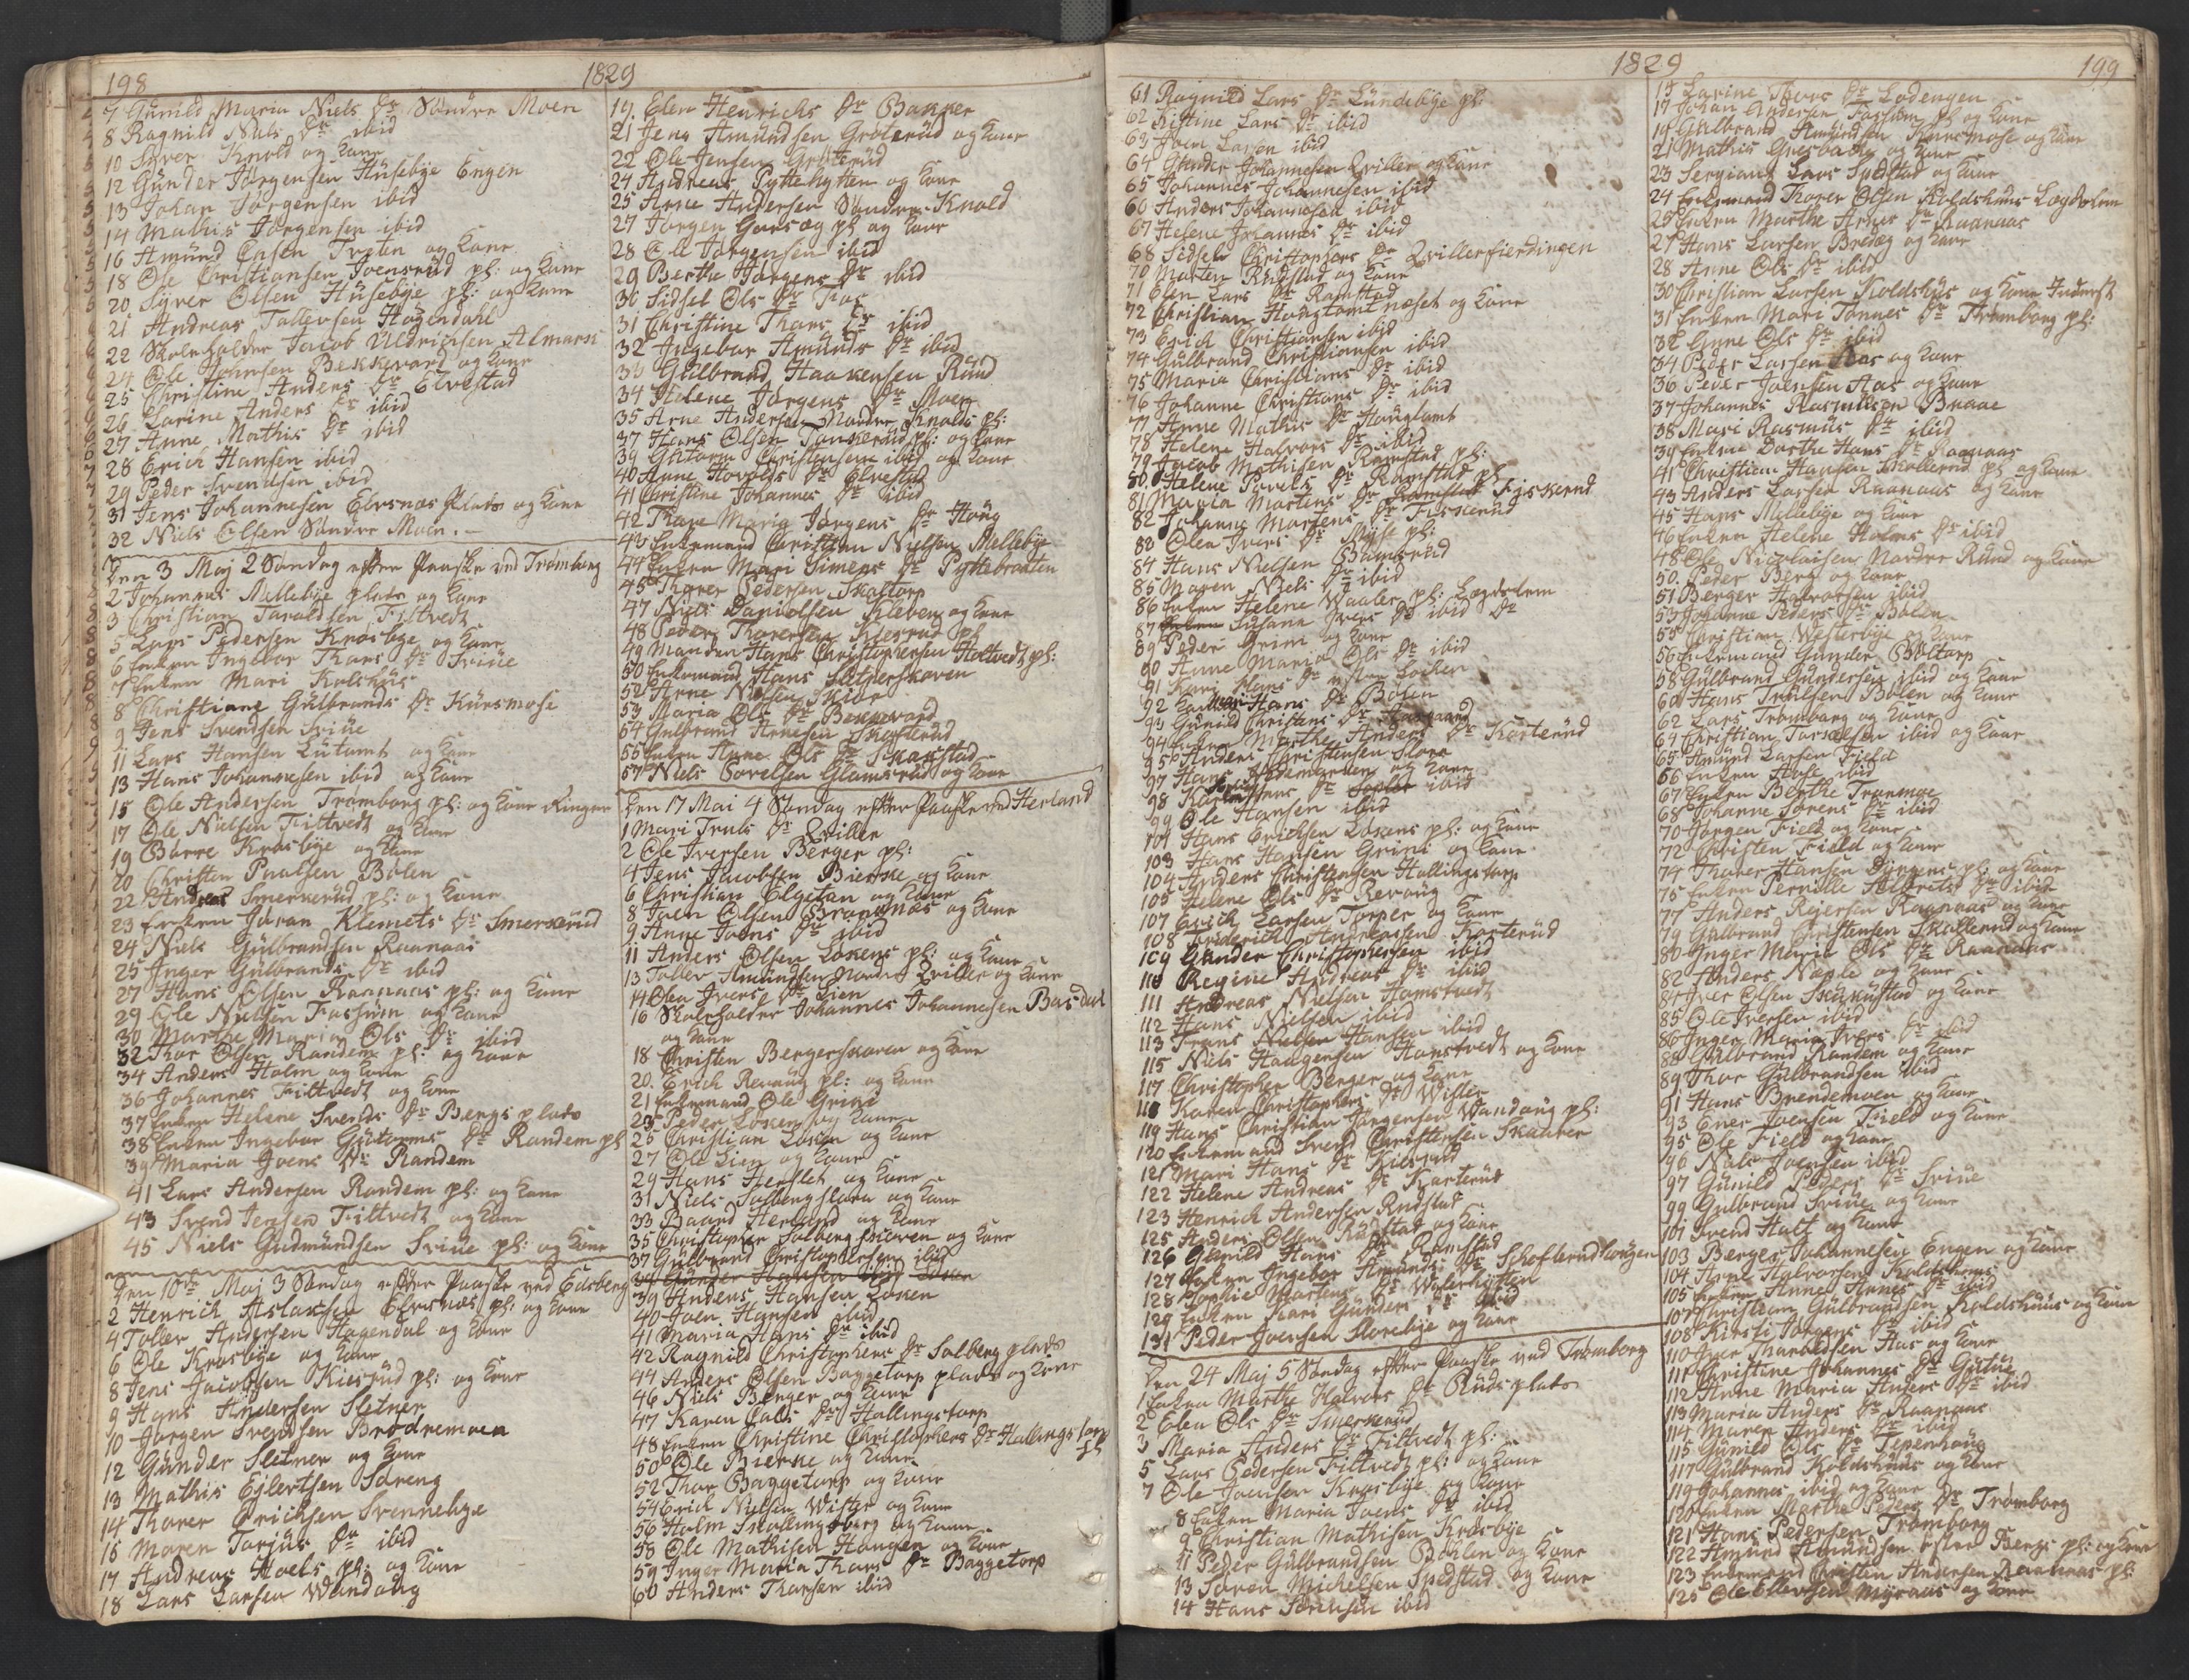 198
1829
7 Gunild Maria Niels Dr Søndre Moen
8 Ragnild Niels Dr ibid
10 Syver Knold og Kone
12 Gunder Jørgensen Husebye Engen
13 Johan Jørgensen ibid
14 Mathis Jørgensen ibid
16 Amund Træten og Kone
18 Ole Christiansen Joensrud pl: og Kone
20 Syver Olsen Husebye pl: og Kone
21 Andreas Tollevsen Hagendahl
22 Skoleholder Jacob Uldrichsen Almarsi
24 Ole Johnsen Bekkevard og Kone
25 Christine Anders Dr Elvestad
26 Larine Anders Dr ibid
27 Anne Mathis Dr ibid
28 Erich Hansen ibid
29 Peder Svendsen ibid
31 Jens Johannesen Elvsnæs Plads og Kone
32 Niels Olsen Søndre Moen.
Den 3 Maj 2 Søndag efter Paaske ved Trømborg
2 Johannes Mellebye plads og Kone
3 Christian Taraldsen Filtvedt
5 Lars Pedersen Krosbye og Kone
6 Enken Ingebor Thors Dr Sviue
7 Enken Mari Kolshus
8 Christiane Gulbrands Dr Kursmose
9 Jens Svendsen Sviue
11 Lars Hansen Lutomt og Kone
13 Hans Johannesen ibid og Kone
15 Ole Andersen Trømborg pl: og Kone Ringer
17 Ole Nielsen Filtvedt og Kone
19 Børre Krosbye og Kone
20 Christen Paulsen Bølen
22 Andreas Smerkerud pl: og Kone
23 Enken Joran Klemets Dr Smerkerud
24 Niels Gulbrandsen Raanaas
25 Inger Gulbrands Dr ibid
27 Hans Olsen Raanaas pl: og Kone
29 Ole Nielsen Fossum og Kone
30 Marthe Maria Ols Dr ibid
32 Thor Olsen Randem pl: og Kone
34 Anders Holm og Kone
36 Johannes Filtvedt og Kone
37 Enken Helene Svends Dr Bergs plads
38 Enken Ingebor Gutorms Dr Randem pl
39 Maria Joens Dr Randem
41 Lars Andersen Randem pl: og Kone
43 Svend Jensen Filtvedt og Kone
45 Niels Gudmundsen Sviue pl: og Kone
Den 10de Maj 3 Søndag efter Paaske ved Eidsberg
2 Henrich Aslaksen Elvsnæs pl: og Kone
4 Toller Andersen Hagendal og Kone
6 Ole Krosbye og Kone
8 Jens Jacobsen Kiesrud pl: og Kone
9 Hans Andersen Sletner
10 Jørgen Svendsen Brødremoen
12 Gunder Sletner og Kone
13 Mathis Eilertsen Søreng
14 Thorer Erichsen Svennebye
15 Maren Torjus Dr ibid
17 Andreas Hoels pl: og Kone
18 Lars Larsen Wandaug
19. Elen Henrichs Dr Bakker
21 Jens Amundsen Groterud og Kone
22 Ole Jensen Groterud
24 Andreas Pyttehytten og Kone
25 Arne Andersen Søndre Knold
27 Jørgen Gaasøg pl og Kone
28 Ole Jørgensen ibid
29 Berthe Jørgens Dr ibid
30 Sidsel Ols Dr Foss
31 Christine Thors Dr ibid
32 Ingebor Amunds Dr ibid
33 Gulbrand Haakensen Ruud
34 Helene Jørgens Dr Moen
35 Arne Andersen Nordre Knolds pl:
37 Hans Olsen Tankerud pl: og Kone
39 Gutorm Christensen ibid og Kone
40 Anne Hovelds Dr Elvestad
41 Christine Johannes Dr ibid
42 Thore Maria Jørgens Dr Houg
43 Enkemand Christian Nielsen Mellebye
44 Enken Mari Simens Dr Pyttebraaten
45 Thorer Pedersen Skoltorp
47 Niels Danielsen Kleven og Kone
48 Peder Thorersen Kiesrud pl
49 Manden Hans Christophersen Holtvedt pl:
50 Enkemand Hans Sletnerskoven
52 Arne Nielsen Skibr
53 Maria Ols Dr Bekkevard
54 Gulbrand Arnesen Skofterud
55 Enken Anne Ols Dr Skarstad
57 Niels Povelsen Glomsrud og Kone
Den 17 Mai 4 Søndag efter Paaske ved Herland
1 Mari Truls Dr Qviller
2 Ole Iversen Berger pl:
4 Jens Jacobsen Bierke og Kone
6 Christian Elgetan og Kone
8 Iven Olsen Brandnæs og Kone
9 Anne Joens Dr ibid
11 Anders Olsen Løkens pl: og Kone
13 Toller Amundsen Nordre Qviller og Kone
14 Olea Ivers Dr Lien
16 Skoleholder Johannes Johannesen Basdal
og Kone
18 Christen Bergerskoven og Kone
20. Erich Revoug pl: og Kone
21 Enkemand Ole Grini
23 Peder Løken og Kone
25 Christian Løken og Kone
27 Ole Lien og Kone
29 Hans Herslet og Kone
31 Niels Solbergslora og Kone
33 Baard Herland og Kone
35 Christopher Solbergskoven og Kone
37 Gulbrand Christophersen ibid
Gunder Hansen ibid Løken
39 Anders Hansen Løken
40 Joen Hansen ibid
41 Maria Hans Dr ibid
42 Ragnild Christophers Dr Solberg plads
44 Anders Olsen Baggetorp plads og Kone
46 Niels Berger og Kone
47 Karen Calls Dr Hallingstorp
48 Enken Christine Christophers Dr Hallingstorp
pl
50 Ole Bierke og Kone
52 Thor Baggetorp og Kone
54 Erich Nielsen Wister og Kone
56 Holm Skollingsberg og Kone
58 Ole Mathisen Haugen og Kone
59 Inger Maria Thors Dr Baggetorp
60 Anders Thorsen ibid
1829
199
61 Ragnild Lars Dr Lundebye pl:
62 Kistine Lars Dr ibid
63 Joen Larsen ibid
64 Gunder Johannesen Qviller og Kone
65 Johannes Johannesen ibid
66 Anders Johannesen ibid
67 Helene Johannes Dr ibid
68 Sidsele Christophers Dr Qvillerfierdingen
70 Morten Rudstad og Kone
71 Elen Lars Dr Ramstad
72 Christian Hougtomt næset og Kone
73 Erich Christiansen ibid
74 Gulbrand Christiansen ibid
75 Maria Christians Dr ibid
76 Johanne Christians Dr ibid
77 Anne Mathis Dr Hougtomt
78 Helene Halvors Dr ibid
79 Jacob Mathisen Ramstad pl:
80. Helene Povels Dr Ramstad pl
81 Maria Mortens Dr Ramstad Fiskerud
82 Johanne Mortens Dr Fiskerud
83 Olea Ivers Dr Mysse pl:
84 Hans Nielsen Bamsrud
85 Maren Niels Dr ibid
86 Enken Helene Waaler pl: Lægdslem
87 Enken Susane Ivers Dr ibid Dr
89 Peder Grini og Kone
90 Anne Maria Ols Dr ibid
91 Kari Hans Dr østre Løken
92 Hans Dr Bølen
93 Gunild Christens Dr
94 Enken Marthe Anders Dr Kørterud
95 Anders Christensen Slora
97 Hans Hedemarken og Kone
98 Dr ibid
99 Ole Hansen ibid
101 Hans Erichsen Løkens pl: og Kone
103 Hans Hansen Grini og Kone
104 Anders Christensen Hallingstorp
105 Helene Ols Dr Revoug
107 Erich Larsen Torper og Kone
108 Friderich Andreasen Korterud
109 Gunder Christophersen ibid
110 Regine Andreas Dr ibid
111 Andreas Nielsen Homstvedt
112 Hans Nielsen ibid
113 Frans Nielsen Hansen ibid
115 Niels Haagensen Homstvedt og Kone
117 Christopher Berger og Kone
118 Karen Christophers Dr Wister
119 Hans Christian Jørgensen Wandoug pl:
120 Enkemand Svend Christensen Skaarer
121 Mari Hans Dr Kiesrud
122 Helene Andreas Dr Korterud
123 Henrich Andersen Rudstad
125 Anders Olsen Rudstad og Kone
126 Gunild Hans Dr Ramstad
127 Enken Ingebor Amunds Dr Skofterudhougen
128 Sophie Mortens Dr Waterhytten
129 Enken Kari Gunders Dr ibid
131 Peder Joensen Slorebye og Kone
Den 24 Maj 5 Søndag efter Paaske ved Trømborg
1 Enken Marthe Halvors Dr Ruds plads
2 Elen Ols Dr Smerkerud
3 Maria Anders Dr Filtvedt pl:
5 Lars Pedersen Filtvedt pl: og Kone
7 Ole Joensen Krosbye og Kone
8 Enken Maria Joens Dr ibid
9 Christian Mathisen Krosbye
11 Peder Gulbrandsen Bøhlen og Kone
13 Søren Michelsen Spedstad og Kone
14 Hans Sørensen ibid
15 Larine Thors Dr Lodengen
17 Johan Andersen Fossum pl og Kone
19 Gulbrand Amundsen Kursmose og Kone
21 Mathis Gresbacke og Kone
23 Sergiant Lars Spedstad og Kone
24 Enkemand Thorer Olsen Koldshuus Lægdslem
25 Enken Marthe Arnes Dr Raanaas
27 Hans Larsen Bredæg og Kone
28 Anne Ols Dr ibid
30 Christian Larsen Koldshus og Kone Inderst
31 Enken Mari Tønnes Dr Trømborg pl:
32 Anne Ols Dr ibid
34 Peder Larsen Aas og Kone
36 Peder Joensen Aas og Kone
37 Johannes Rasmussen Braae
38 Mari Rasmus Dr ibid
39 Enken Dorthe Hans Dr Raanaas
41 Christian Hansen Skollerud pl og Kone
43 Anders Larsen Raanaas og Kone
45 Hans Mellebye og Kone
46 Enken Helene Holms Dr ibid
48 Ole Nicolaisen Nordre Ruud og Kone
50. Peder Berg og Kone
51 Berger Halvorsen ibid
53 Johanne Peders Dr Bølen
55 Christian Westerbye og Kone
56 Enkemand Gunder Boltorp
58 Gulbrand Gundersen ibid og Kone
60 Hans Trulsen Bølen og Kone
62 Lars Trømborg og Kone
64 Christian Torsælsen ibid og Kone
65 Amund Larsen Field
66 Enken Aase ibid
67 Enken Berthe Tranmæe
68 Johanne Sørens Dr ibid
70 Jørgen Field og Kone
72 Christen Field og Kone
74 Thorer Hansen Dyrens pl: og Kone
75 Enken Pernille Dr ibid
77 Anders Rejersen Raanaas og Kone
79 Gulbrand Christensen Skollerud og Kone
80 Inger Maria Ols Dr Raanaas
82 Anders Næple og Kone
84 Iver Olsen Skukustad og Kone
85 Ole Iversen ibid
86 Inger Maria Ivers Dr ibid
88 Gulbrand Randem og Kone
89 Thor Gulbrandsen ibid
91 Hans Brendemoen og Kone
93 Ener Joensen Field og Kone
95 Ole Field og Kone
96 Niels Joensen ibid
97 Gunild Peders Dr Sviue
99 Gulbrand Sviue og Kone
101 Svend Holt og Kone
103 Berger Johannesen Engen og Kone
104 Arne Halvorsen Koldshuus
105 Enken Anne Arnes Dr ibid
107 Christian Gulbrandsen Koldshuus og Kone
108 Kirsti Jørgens Dr ibid
110 Iver Marboesen Aas og Kone
111 Christine Johannes Dr Gutue
112 Anne Maria Anders Dr ibid
113 Maria Anders Dr Raanaas
114 Maren Anders Dr ibid
115 Gunild Ols Dr Tepenhoug
117 Gulbrand Koldshuus og Kone
119 Johannes ibid og Kone
120 Enken Marthe Peders Dr Trømborg
121 Hans Pedersen Trømborg
122 Amund Amundsen østre Bergs pl: og Kone
123 Enkemand Christen Andersen Raanaas pl:
125 Ole Ellevsen Myraas og Kone